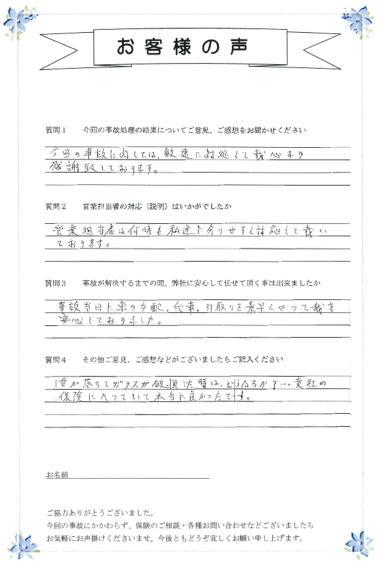 お客様の声
質問1 今回の事故処理の結果についてご意見、ご感想をお聞かせください
今回の事故に関しては、敏速に対処して戴き心より
感謝致しております。
質問2 営業担当者の対応（説明）はいかがでしたか
営業担当者は何時も 対応して戴い
ております。
質問3 事故が解決するまでの間、弊社に安心して任せて頂く事は出来ましたか
事故当日 の手配、代車、引取りを素早くやって戴き
安心しておりました。
質問4 その他ご意見、ご感想などがございましたらご記入ください
落ちてガラスが破損した時は、どうなるか？…貴社の
保険に入っていて本当に良かったです。
お名前
ご協力ありがとうございました。
今回の事故にかかわらず、保険のご相談・各種お問い合わせなどございましたら
お気軽にお声掛けくださいませ。今後ともどうぞ宜しくお願い申し上げます。